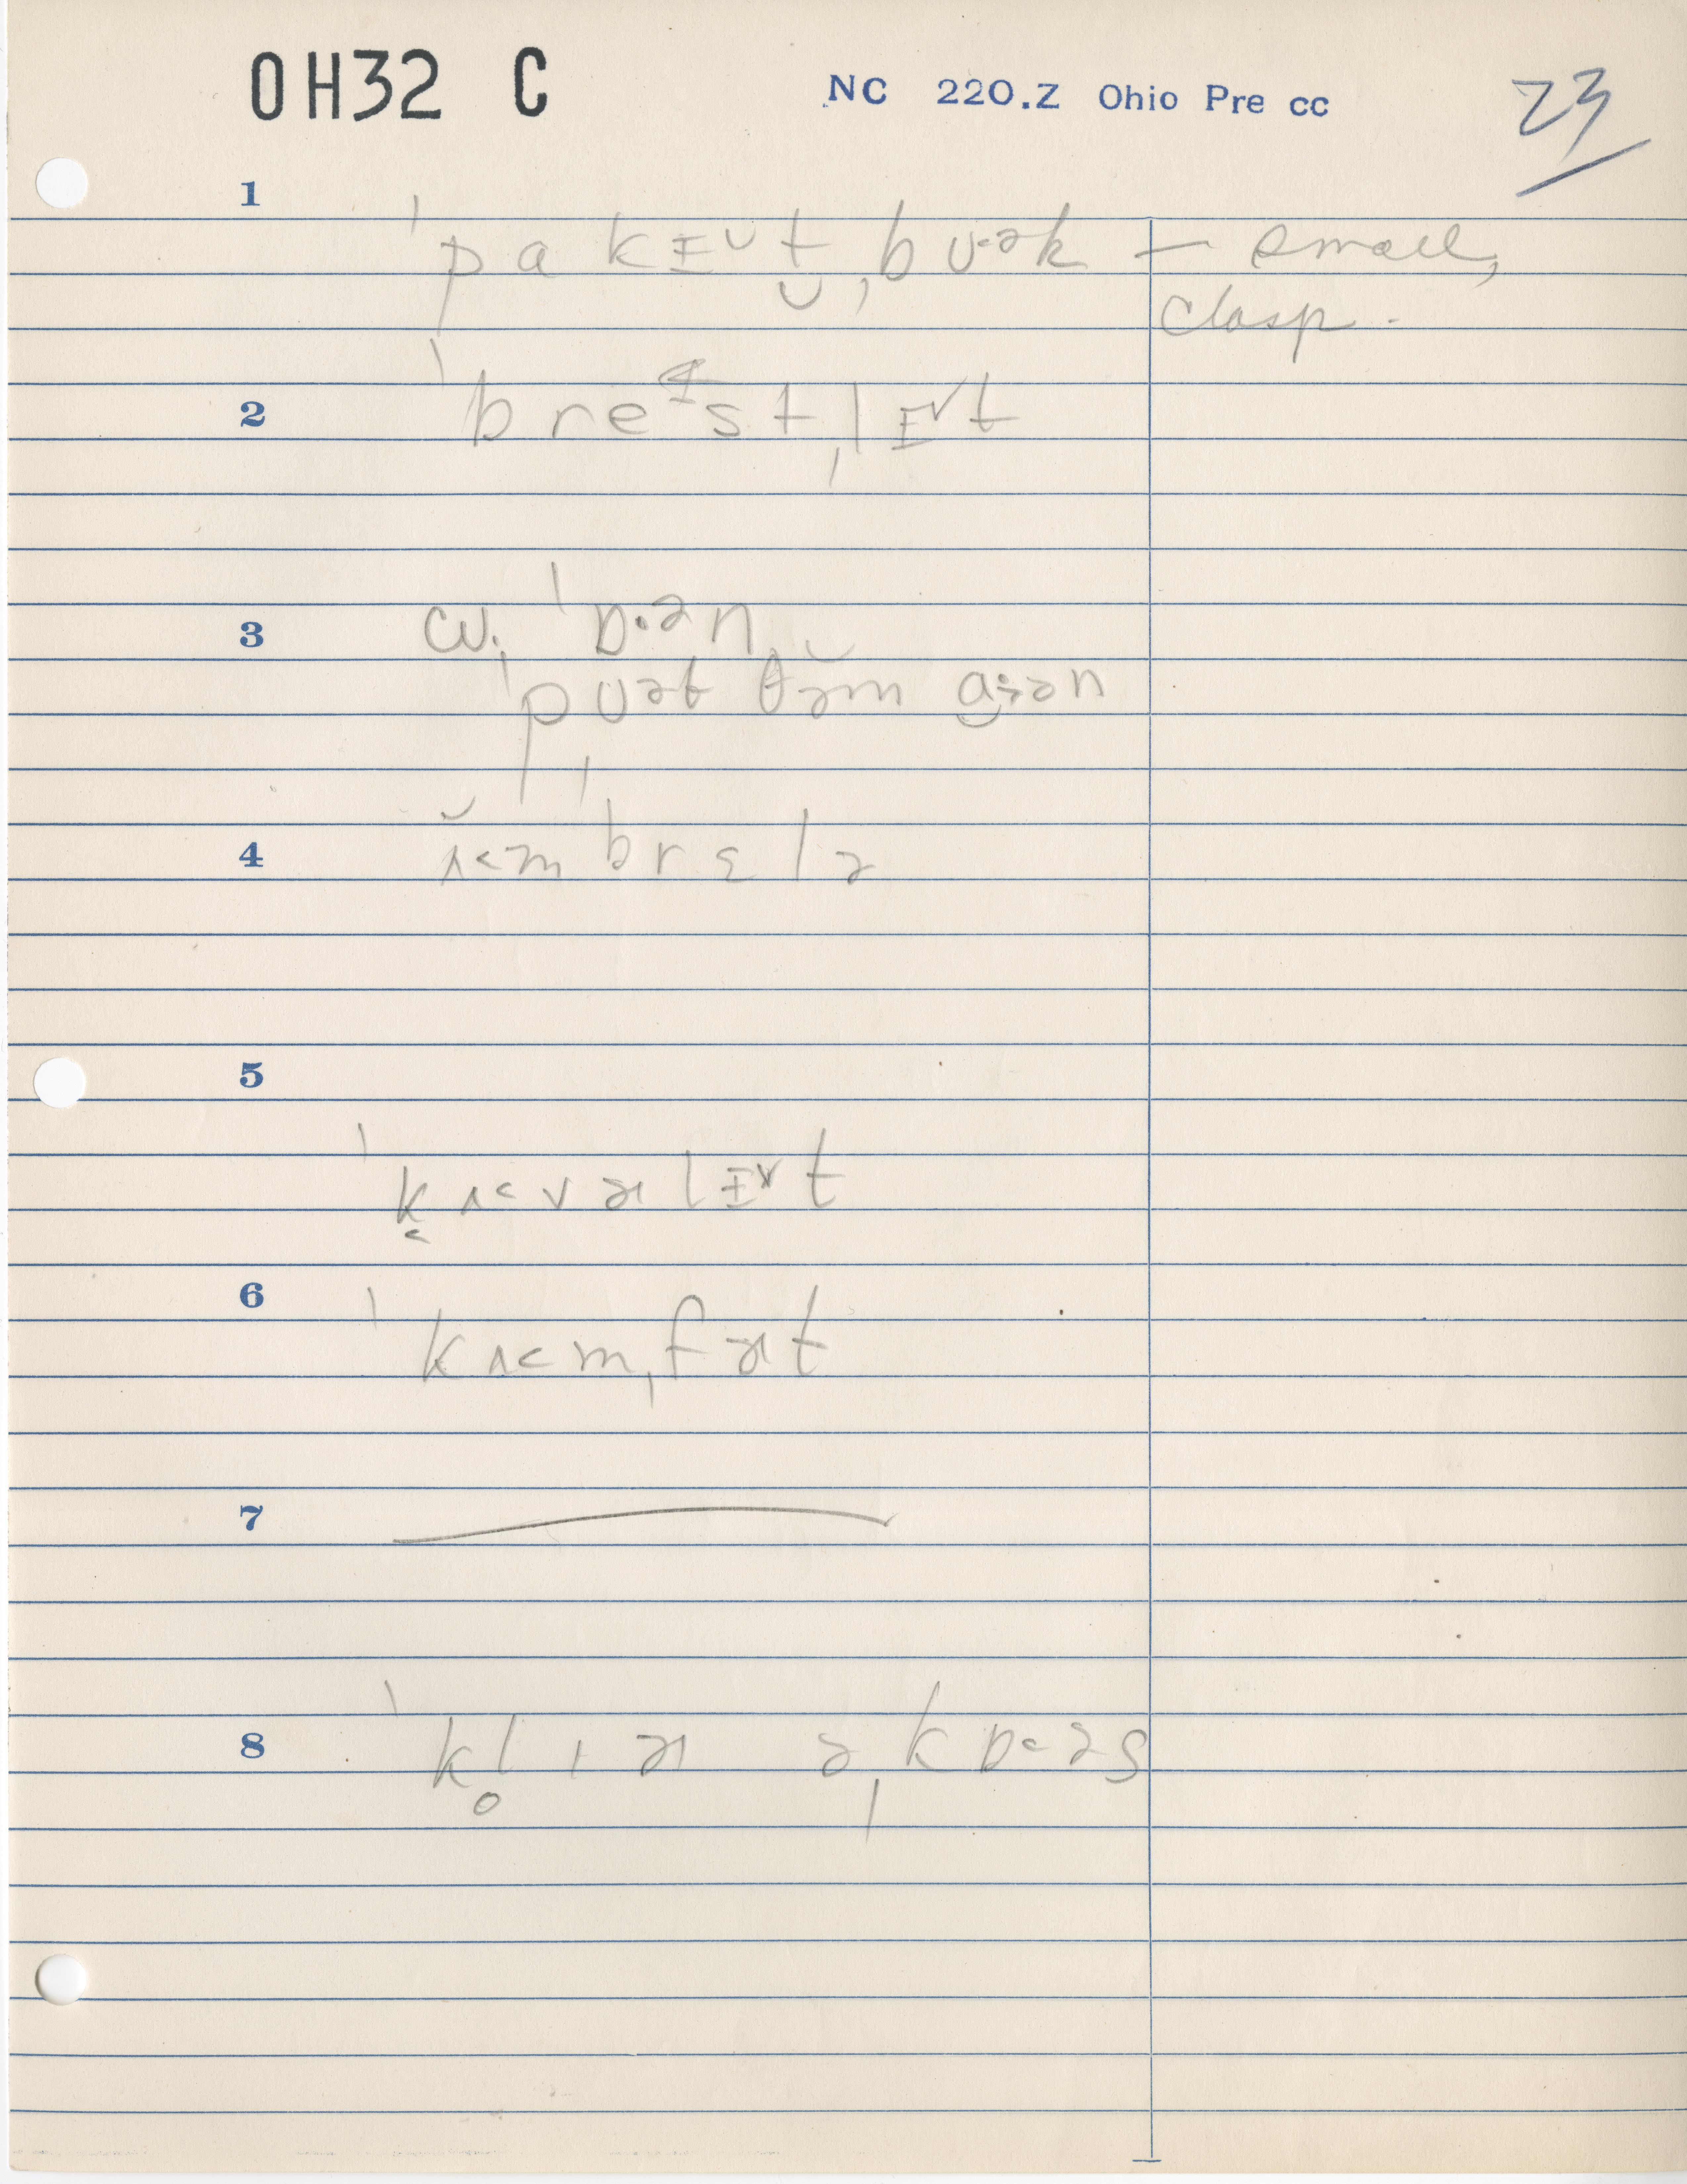 OH32 C
NC 220.Z Ohio Pre cc
23
1
ˈpakɪ˅t̬ˌbᴜ·ək — small,
clasp.
2
ˈbreᶦstˌlɪ˅t
3
w. ˈɒ·ən
ˈpᴜət ðə̆m ɑ·ən
4
ʌ̆˂mˈbrɛlə
5
ˈk̬ʌ˂vɚlɪ˅t
6
ˈkʌ˂mˌfɚt
7
8
ˈkl̥ɪɚ əˌkɒ˂əs